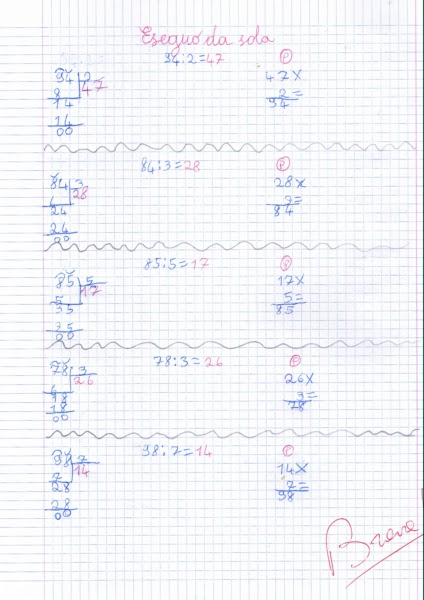 Eseguo da sola
94:2=47
94 2
8 47
14
14
00
P
47X
2=
94
84:3=28
84 3
6 28
24
24
00
P
28X
3=
84
85:5=17
85 5
5 17
35
35
00
P
17X
5=
85
78:3=26
78 3
6 26
18
18
00
P
26X
3=
78
98:7=14
98 7
7 14
28
28
00
P
14X
7=
98
Brava!